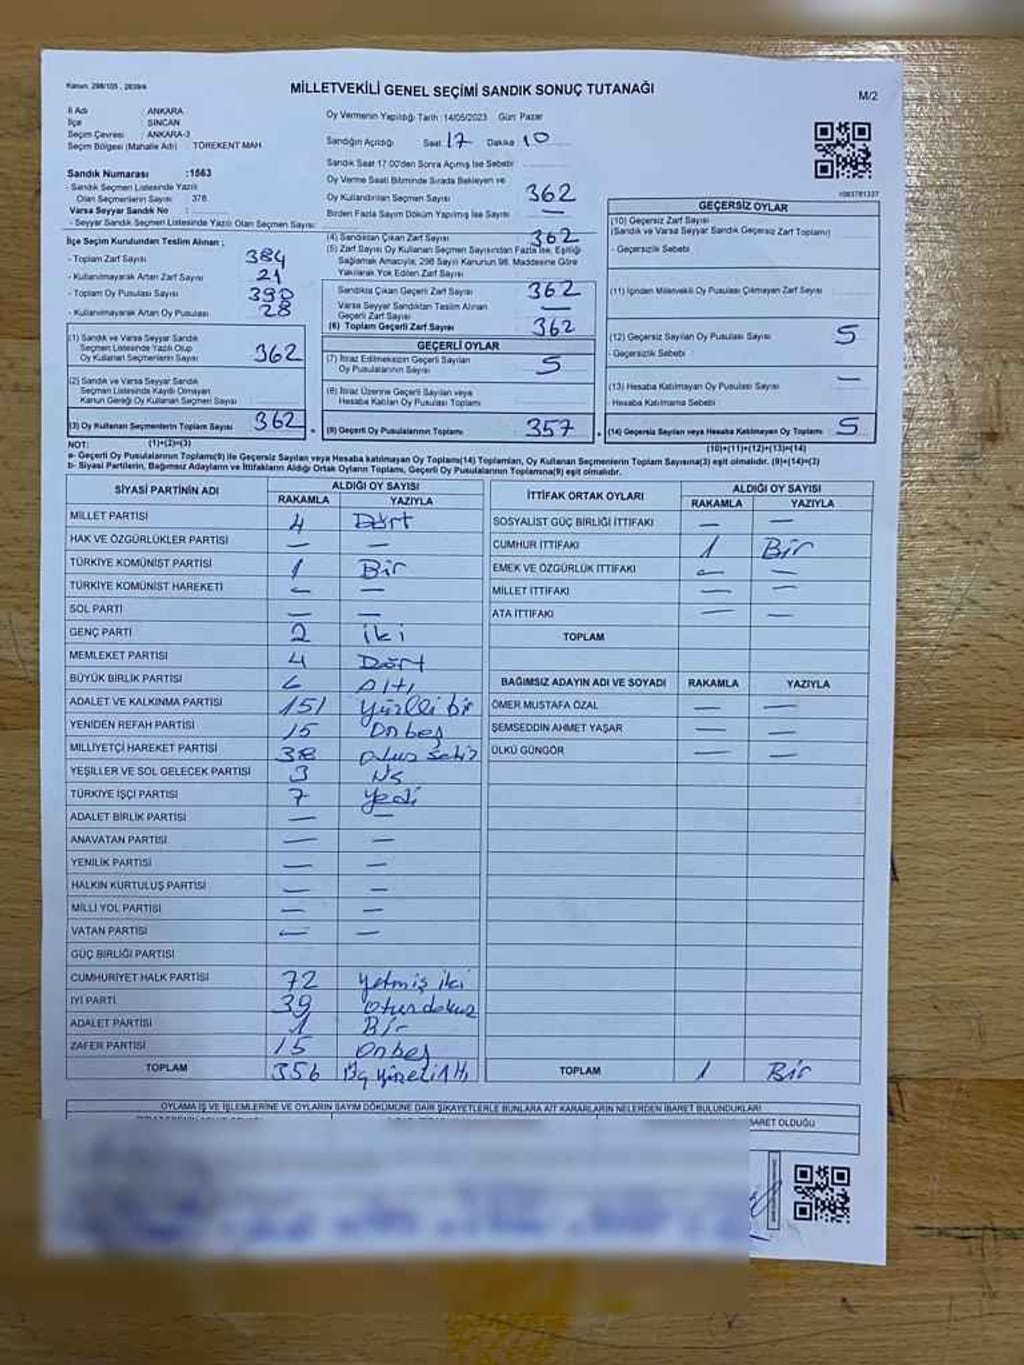 Kanun: 298/105 , 2839/4
MİLLETVEKİLİ GENEL SEÇİMİ SANDIK SONUÇ TUTANAĞI
M/2
İl Adı : ANKARA
İlçe : SİNCAN
Seçim Çevresi : ANKARA-3
Seçim Bölgesi (Mahalle Adı) : TÖREKENT MAH.
Sandık Numarası :1563
- Sandık Seçmen Listesinde Yazılı
Olan Seçmenlerin Sayısı : 378
Varsa Seyyar Sandık No :
- Seyyar Sandık Seçmen Listesinde Yazılı Olan Seçmen Sayısı:
İlçe Seçim Kurulundan Teslim Alınan :
- Toplam Zarf Sayısı 384
- Kullanılmayarak Artan Zarf Sayısı 21
- Toplam Oy Pusulası Sayısı 390
- Kullanılmayarak Artan Oy Pusulası 28
(1) Sandık ve Varsa Seyyar Sandık
Seçmen Listesinde Yazılı Olup
Oy Kullanan Seçmenlerin Sayısı 362
(2) Sandık ve Varsa Seyyar Sandık
Seçmen Listesinde Kaydı Olmayan
Kanun Gereği Oy Kullanan Seçmen Sayısı
(3) Oy Kullanan Seçmenlerin Toplam Sayısı 362
Oy Vermenin Yapıldığı Tarih :14/05/2023 Gün: Pazar
Sandığın Açıldığı Saat 17 Dakika 10
Sandık Saat 17.00'den Sonra Açılmış İse Sebebi
Oy Verme Saati Bitiminde Sırada Bekleyen ve
Oy Kullandırılan Seçmen Sayısı 362
Birden Fazla Sayım Döküm Yapılmış İse Sayısı —
(4) Sandıktan Çıkan Zarf Sayısı 362
(5) Zarf Sayısı Oy Kullanan Seçmen Sayısından Fazla İse, Eşitliği
Sağlamak Amacıyla; 298 Sayılı Kanunun 98. Maddesine Göre
Yakılarak Yok Edilen Zarf Sayısı
Sandıkta Çıkan Geçerli Zarf Sayısı 362
Varsa Seyyar Sandıktan Teslim Alınan
Geçerli Zarf Sayısı —
(6) Toplam Geçerli Zarf Sayısı 362
GEÇERLİ OYLAR
(7) İtiraz Edilmeksizin Geçerli Sayılan
Oy Pusulalarının Sayısı 5
(8) İtiraz Üzerine Geçerli Sayılan veya
Hesaba Katılan Oy Pusulası Toplamı
(9) Geçerli Oy Pusulalarının Toplamı 357
1083781337
GEÇERSİZ OYLAR
(10) Geçersiz Zarf Sayısı
(Sandık ve Varsa Seyyar Sandık Geçersiz Zarf Toplamı)
- Geçersizlik Sebebi
(11) İçinden Milletvekili Oy Pusulası Çıkmayan Zarf Sayısı
(12) Geçersiz Sayılan Oy Pusulası Sayısı 5
- Geçersizlik Sebebi :
(13) Hesaba Katılmayan Oy Pusulası Sayısı —
- Hesaba Katılmama Sebebi
(14) Geçersiz Sayılan veya Hesaba Katılmayan Oy Toplamı 5
NOT: (1)+(2)=(3)
(10)+(11)+(12)+(13)=(14)
a- Geçerli Oy Pusulalarının Toplamı(9) ile Geçersiz Sayılan veya Hesaba katılmayan Oy Toplamı(14) Toplamları, Oy Kullanan Seçmenlerin Toplam Sayısına(3) eşit olmalıdır. (9)+(14)=(3)
b- Siyasi Partilerin, Bağımsız Adayların ve İttifakların Aldığı Ortak Oyların Toplamı, Geçerli Oy Pusulalarının Toplamına(9) eşit olmalıdır.
SİYASİ PARTİNİN ADI ALDIĞI OY SAYISI
RAKAMLA YAZIYLA
MİLLET PARTİSİ 4 Dört
HAK VE ÖZGÜRLÜKLER PARTİSİ — —
TÜRKİYE KOMÜNİST PARTİSİ 1 Bir
TÜRKİYE KOMÜNİST HAREKETİ — —
SOL PARTİ — —
GENÇ PARTİ 2 iki
MEMLEKET PARTİSİ 4 Dört
BÜYÜK BİRLİK PARTİSİ 6 Altı
ADALET VE KALKINMA PARTİSİ 151 yüzelli bir
YENİDEN REFAH PARTİSİ 15 Onbeş
MİLLİYETÇİ HAREKET PARTİSİ 38 otuz sekiz
YEŞİLLER VE SOL GELECEK PARTİSİ 3 üç
TÜRKİYE İŞÇİ PARTİSİ 7 yedi
ADALET BİRLİK PARTİSİ — —
ANAVATAN PARTİSİ — —
YENİLİK PARTİSİ — —
HALKIN KURTULUŞ PARTİSİ — —
MİLLİ YOL PARTİSİ — —
VATAN PARTİSİ — —
GÜÇ BİRLİĞİ PARTİSİ
CUMHURİYET HALK PARTİSİ 72 yetmiş iki
İYİ PARTİ 39 otuzdokuz
ADALET PARTİSİ 1 Bir
ZAFER PARTİSİ 15 onbeş
TOPLAM 356 üçyüzelliAltı
İTTİFAK ORTAK OYLARI ALDIĞI OY SAYISI
RAKAMLA YAZIYLA
SOSYALİST GÜÇ BİRLİĞİ İTTİFAKI — —
CUMHUR İTTİFAKI 1 Bir
EMEK VE ÖZGÜRLÜK İTTİFAKI — —
MİLLET İTTİFAKI — —
ATA İTTİFAKI — —
TOPLAM
BAĞIMSIZ ADAYIN ADI VE SOYADI RAKAMLA YAZIYLA
ÖMER MUSTAFA ÖZAL — —
ŞEMSEDDİN AHMET YAŞAR — —
ÜLKÜ GÜNGÖR — —
TOPLAM 1 Bir
OYLAMA İŞ VE İŞLEMLERİNE VE OYLARIN SAYIM DÖKÜMÜNE DAİR ŞİKAYETLERLE BUNLARA AİT KARARLARIN NELERDEN İBARET BULUNDUKLARI
OLDUĞU